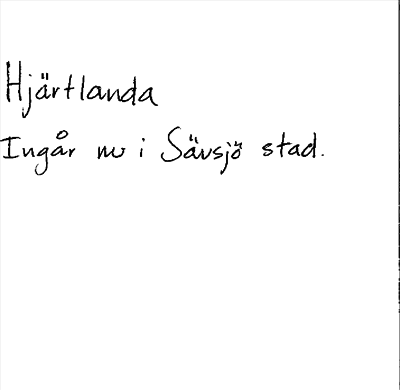 Hjärtlanda
Ingår nu i Sävsjö stad.